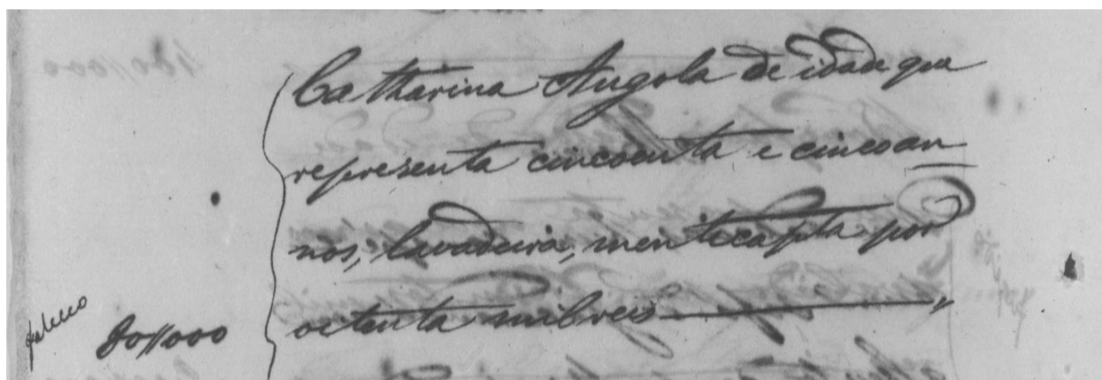 Catharina Angola de idade que
representa cincoenta e cinco an
nos, lavadeira, mentecapta por
octenta mil reis ———— "
falleceo
80//000